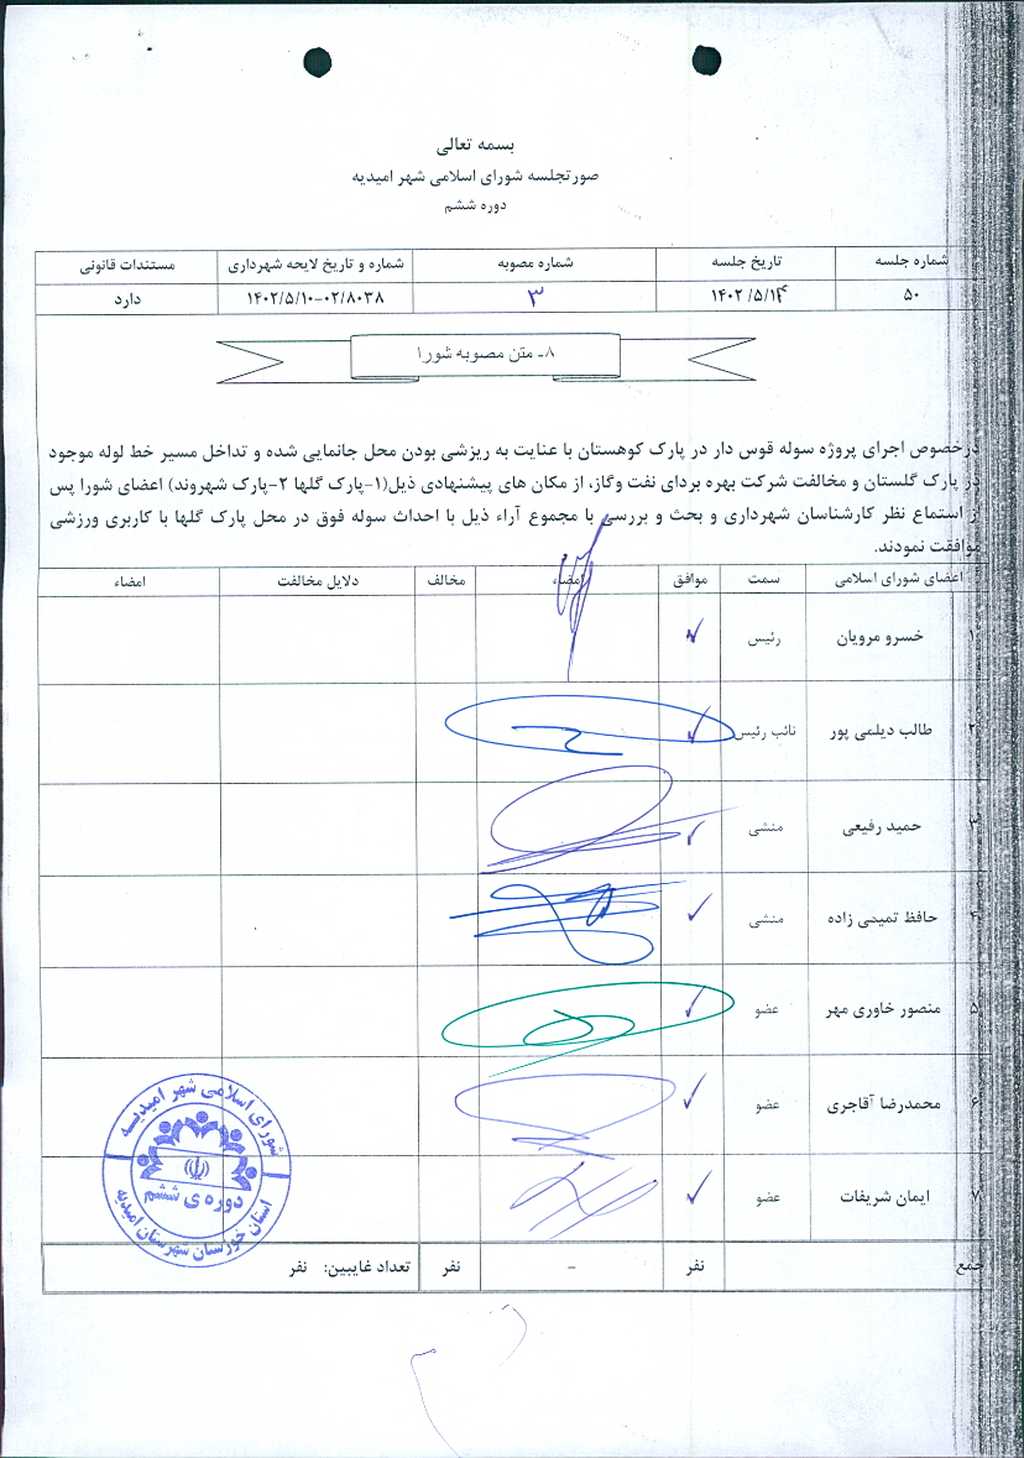 بسمه تعالی
صورتجلسه شورای اسلامی شهر امیدیه
دوره ششم
شماره جلسه تاریخ جلسه شماره مصوبه شماره و تاریخ لایحه شهرداری مستندات قانونی
۵۰ ۱۴۰۲/۵/۱۴ ۳ ۱۴۰۲/۵/۱۰-۰۲/۸۰۳۸ دارد
۸- متن مصوبه شورا
درخصوص اجرای پروژه سوله قوس دار در پارک کوهستان با عنایت به ریزشی بودن محل جانمایی شده و تداخل مسیر خط لوله موجود
در پارک گلستان و مخالفت شرکت بهره بردای نفت وگاز، از مکان های پیشنهادی ذیل(۱-پارک گلها ۲-پارک شهروند) اعضای شورا پس
از استماع نظر کارشناسان شهرداری و بحث و بررسی با مجموع آراء ذیل با احداث سوله فوق در محل پارک گلها با کاربری ورزشی
موافقت نمودند.
اعضای شورای اسلامی سمت موافق امضاء مخالف دلایل مخالفت امضاء
۱ خسرو مرویان رئیس
۲ طالب دیلمی پور نائب رئیس
۳ حمید رفیعی منشی
۴ حافظ تمیمی زاده منشی
۵ منصور خاوری مهر عضو
۶ محمدرضا آقاجری عضو
۷ ایمان شریفات عضو
جمع نفر - نفر تعداد غایبین: نفر
شورای اسلامی شهر امیدیه
دوره ی ششم
استان خوزستان شهرستان امیدیه